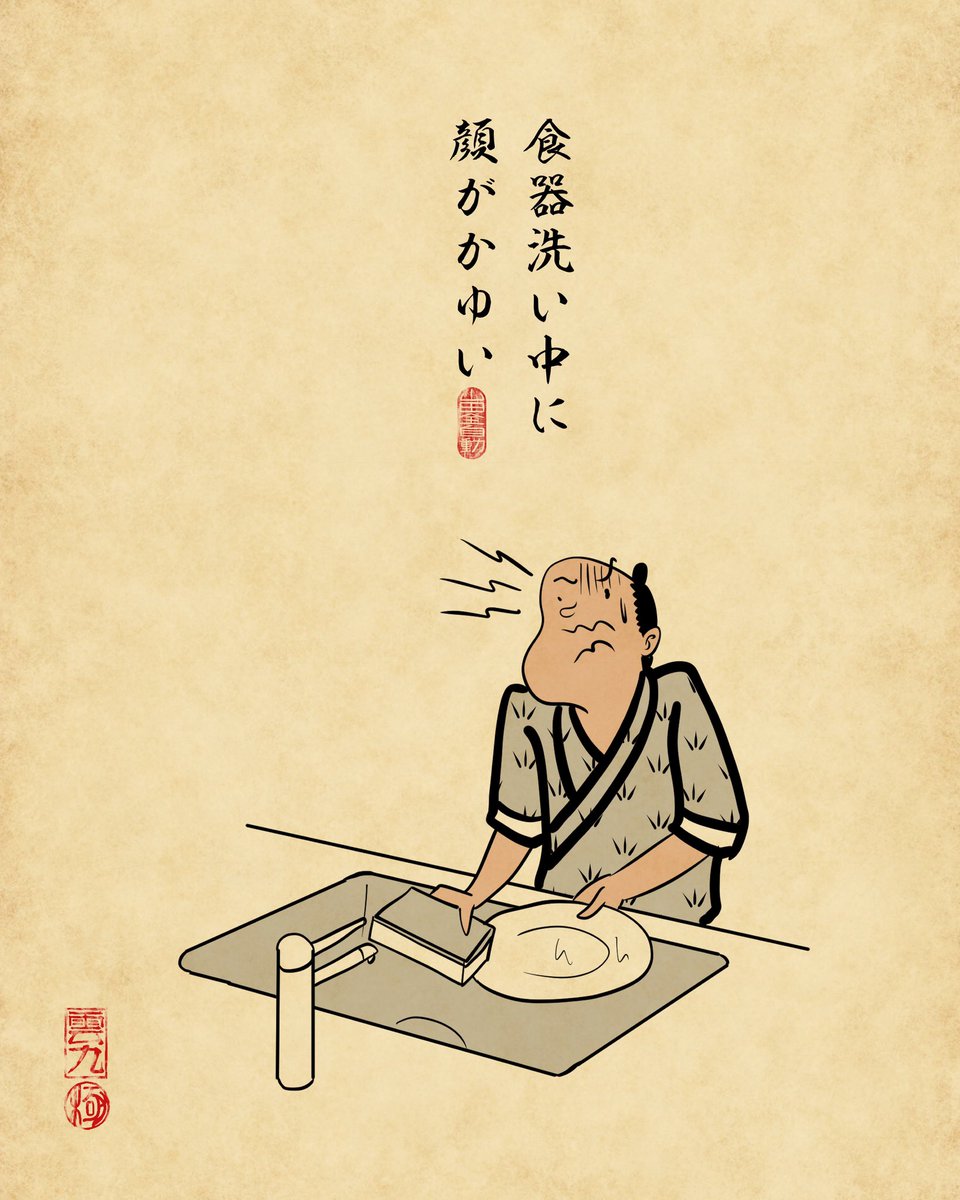 食器洗い中に
顔がかゆい